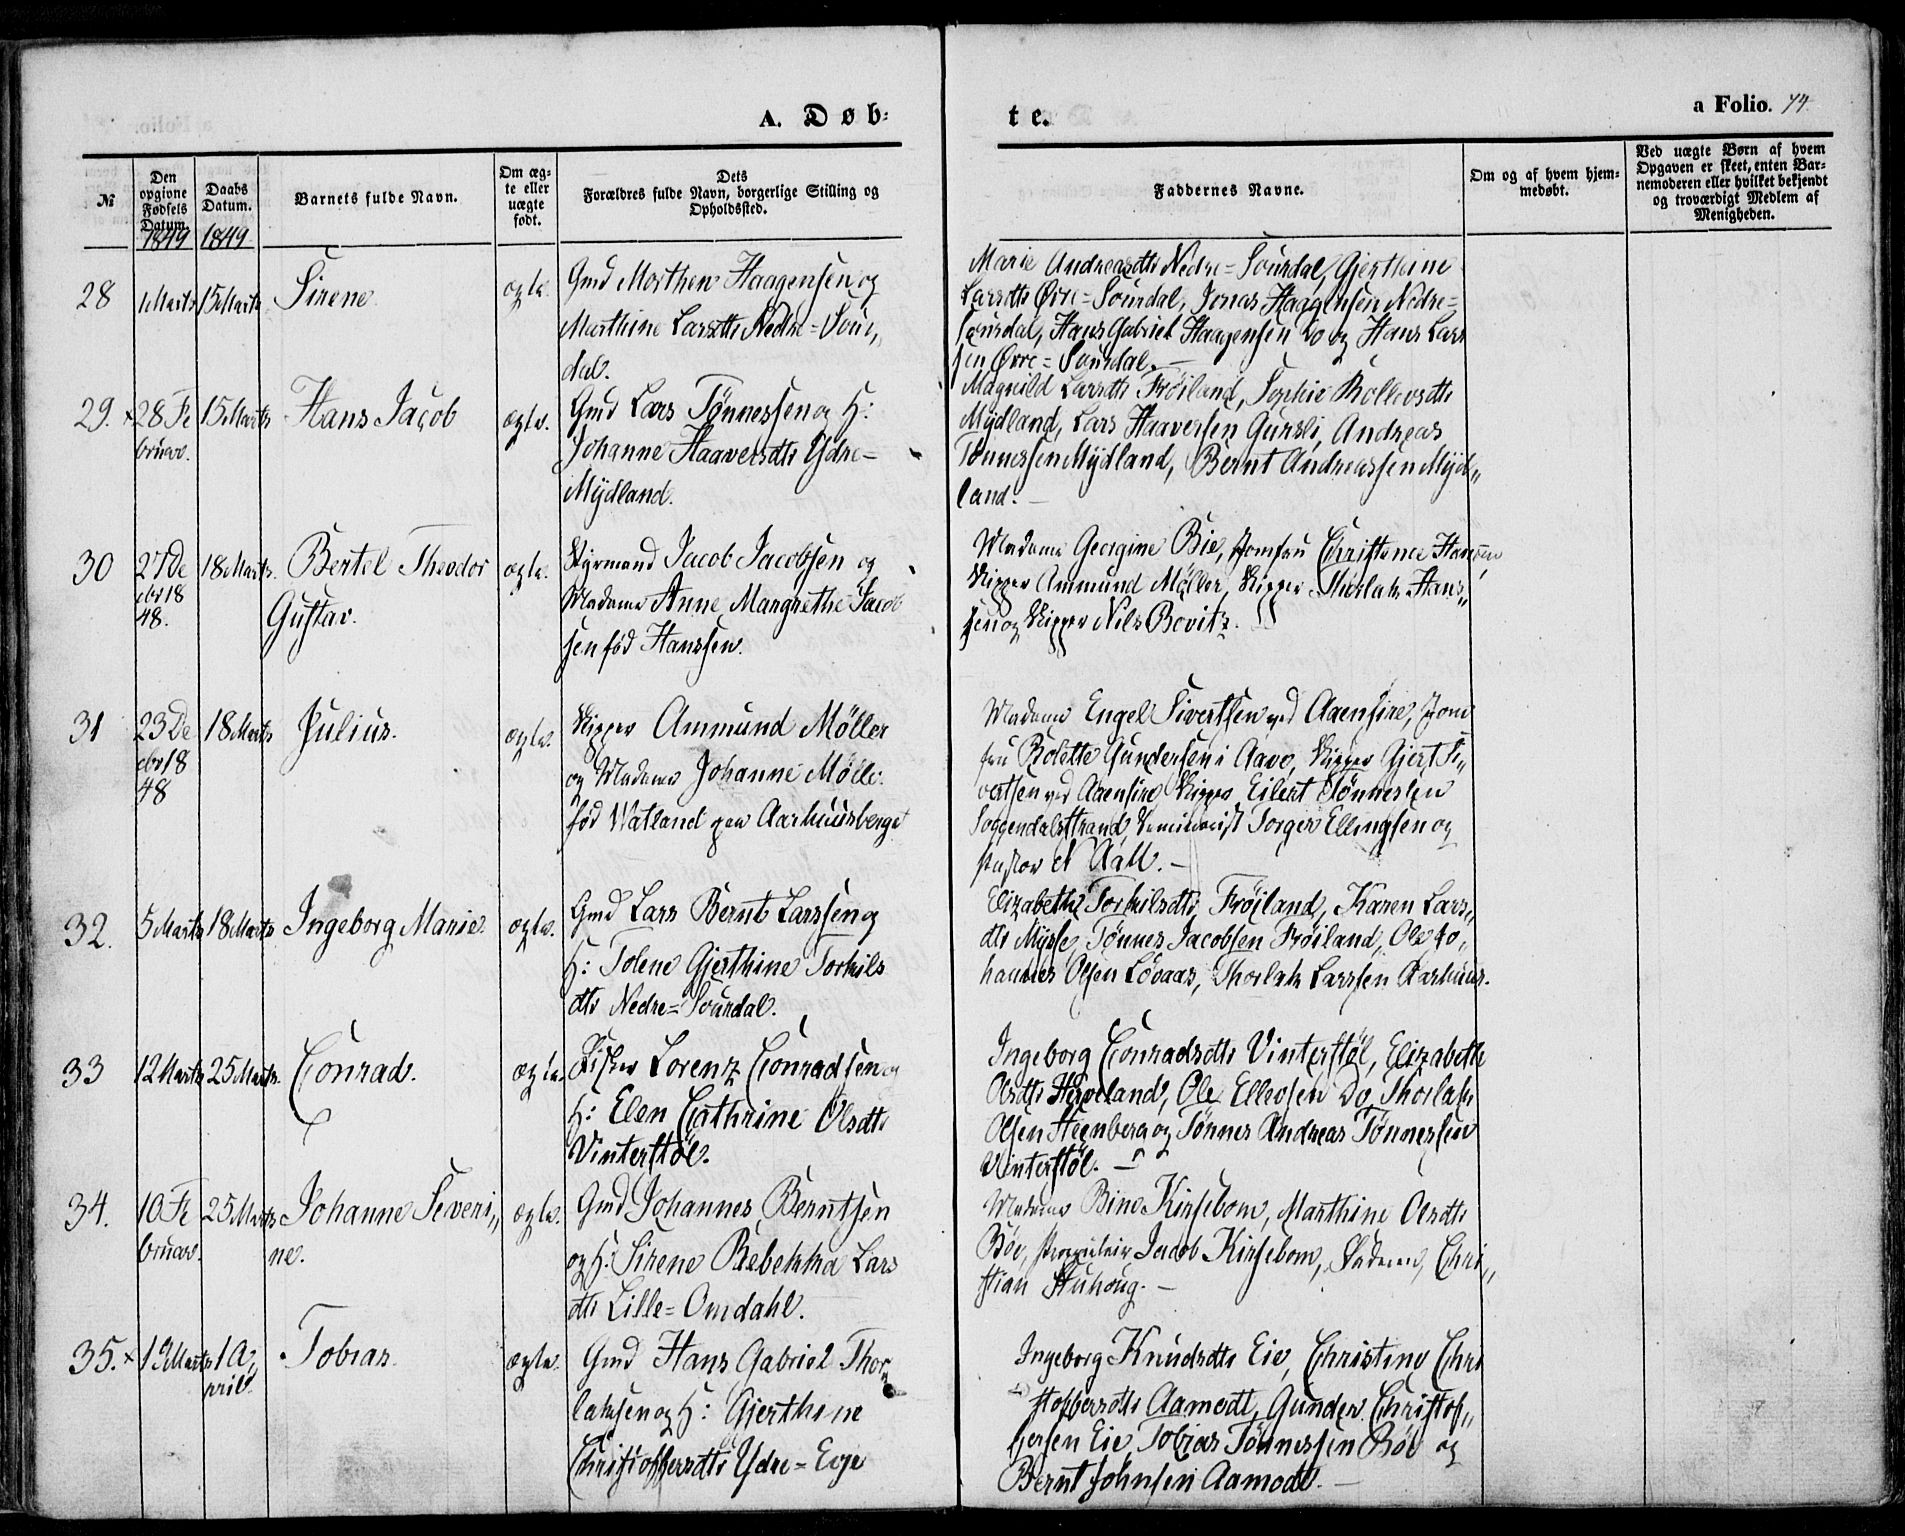 A. Døb-
te.
a Folio. 74.
№
Den opgivne Fødsels Datum.
Daabs Datum.
Barnets fulde Navn.
Om ægte eller uægte født.
Dets Forældres fulde Navn, borgerlige Stilling og Opholdssted.
Faddernes Navne.
Om og af hvem hjemmedøbt.
Ved uægte Børn af hvem Opgaven er skeet, enten Barnemoderen eller hvilket bekjendt og troværdigt Medlem af Menigheden.
1849 1849
28 1 Marts 15 Marts Sirene ægte.
Gmd Morthen Haagensen og
Marthine Larsdtr Nedre=Sour,,
dal.
Marie Andreasdtr Nedre=Sourdal, Gjerthine
Larsdtr Øvre=Sourdal, Jonas Haagensen Nedre=
Sourdal, Hans Gabriel Haagensen Do og Hans Lars
sen Øvre=Sourdal.
29. × 28 Fe
bruar. 15 Marts Hans Jacob ægte.
Gmd Lars Tönnessen og H:
Johanne Haaversdtr Ydre=
Mÿdland.
Magnild Larsdtr Fröiland, Sophie Rollevsdtr
Mÿdland, Lars Haaversen Gursli, Andreas
Tönnessen Mÿdland, Bernt Andreassen Mÿd,,
land.
30 27 De
cbr 18
48. 18 Marts. Bertel Theodor
Gustav. ægte.
Styrmand Jacob Jacobsen og
Madame Anne Margrethe Jacob
sen föd Hanssen.
Madame Georgine Bie, Jomfru Christence Hanssen,
Skipper Ammund Möller, Skipper Thorlak Hans,,
sen og Skipper Nils Bovitz.
31 23 De
cbr 18
48 18 Marts Julius. ægte.
Skipper Ammund Möller
og Madame Johanne Mölle
föd Watland paa Aarhuusberget
Madame Engel Sivertsen ved Aaensire, Jom
fru Bolette Gundersen i Aavo, Skipper Gjert Si,,
vertsen ved Aaensire, Skipper Eilert Tönnessen
Soggendalsstrand, Seminarist Torger Ellingsen og
Pastor N Aall.
32. 5 Marts 18 Marts Ingeborg Marie. ægte.
Gmd Lars Bernt Larssen og
H: Tolene Gjerthine Torkils
dtr Nedre=Sourdal.
Elizabeth Torkilsdtr Fröiland, Karen Lars,,
dtr Mysse, Tönnes Jacobsen Fröiland, Ole Jo,,
hannes Olsen Lövaas, Thorlak Larssen Aarhuus.
33 12 Marts 25 Marts. Conrad. ægte.
Fisker Lorenz Conradsen og
H: Elen Cathrine Olsdtr
Vinterstöl.
Ingeborg Conradsdtr Vinterstöl, Elizabeth
Olsdtr Haveland, Ole Ellevsen Do, Thorlak
Olsen Steenberg og Tönnes Andreas Tönnessen
Vinterstöl.
34. 10 Fe
bruar. 25 Marts Johanne Severi,,
ne. ægte.
Gmd Johannes Berntsen
og H: Sirene Rebekka Lars
dtr Lille=Omdahl.
Madame Bine Kirsebom, Marthine Olsdtr
Böe, Proprietair Jacob Kirsebom, Chri,,
stian Stuhoug.
35. × 19 Marts 1 A,,
pril Tobias. ægte.
Gmd Hans Gabriel Thor,,
laksen og H: Gjerthine
Christoffersdtr Ydre=Eeje
Ingeborg Knudsdtr Eie, Christine Chri
stoffersdtr Aamodt, Gunder Christof,,
fersen Eie, Tobias Tönnessen Böe og
Bernt Johnsen Aamodt.